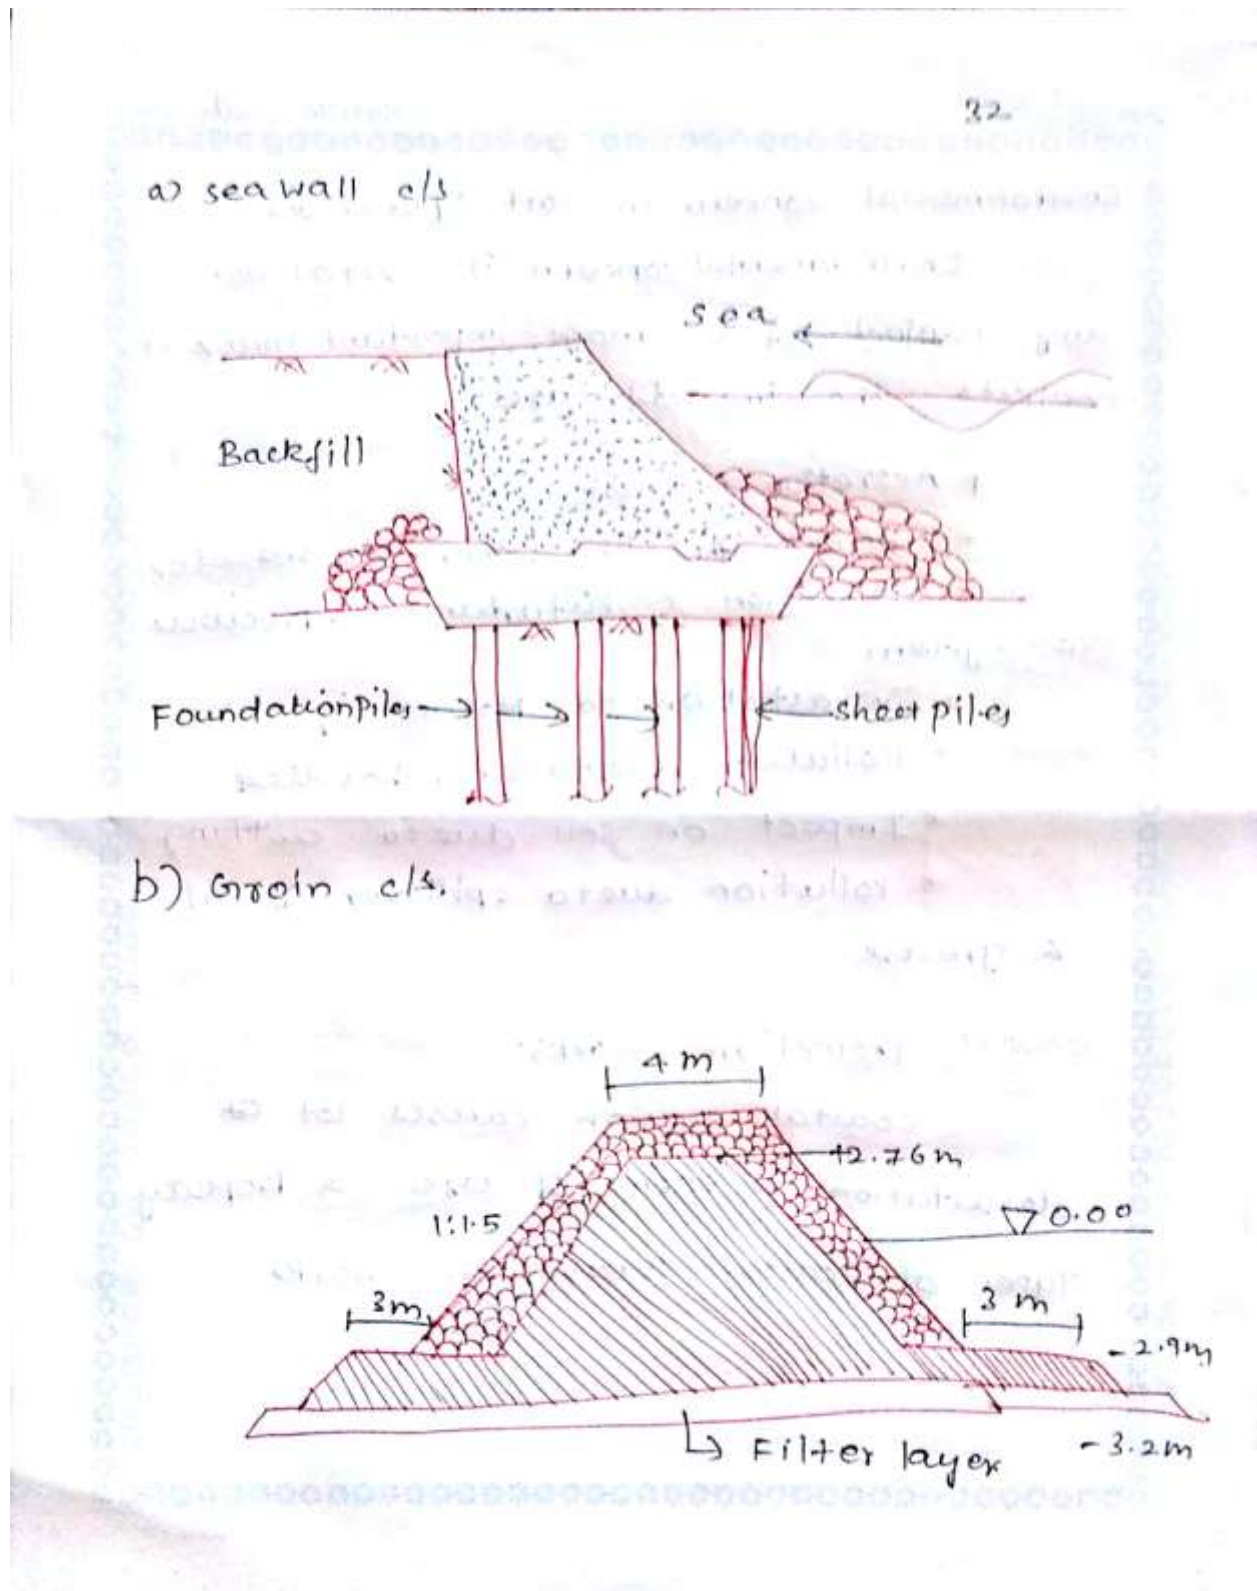 32
a) sea wall c/s
sea
Backfill
Foundation Piles
sheet piles
b) Groin c/s.
4 m
+2.76 m
1:1.5
0.00
3m
3 m
- 2.9m
Filter layer
- 3.2m